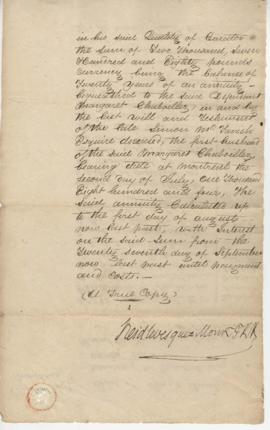 in his said Quality of Curator
the Sum of Two Thousand, Seven
Hundred and Eighty pounds
Currency being the Balance of
Twenty years of an annuity
bequeathed to the Said Defendant
Margaret Chaboillez, in and by
the last will and Testament
of the late Simon McTavish
Esquire deceased, the first husband
of the said Margaret Chaboillez
bearing date at Montreal the
second day of July, One Thousand
Eight hundred and four, The
Said annuity Calculated up
to the first day of august
now last past, with Interest
on the Said Sum from the
Twenty seventh day of September
now last past until payment
and Costs.
(A True Copy)
Monk